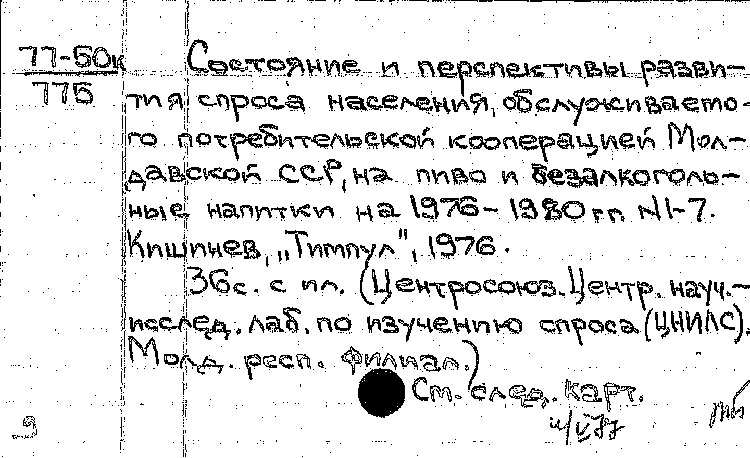 77-50к Состояние и перспективы разви-
775 тия спроса населения, обслуживаемо-
го потребительской кооперацией Мол-
давской ССР, на пиво и безалкоголь-
ные напитки на 1976-1980 гг. №1-7.
Кишинев, „Тимпул", 1976.
36с. с ил. (Центросоюз. Центр. науч.-
исслед. лаб. по изучению спроса (ЦНИЛС).
Молд. респ. филиал.)
См. след. карт.
9